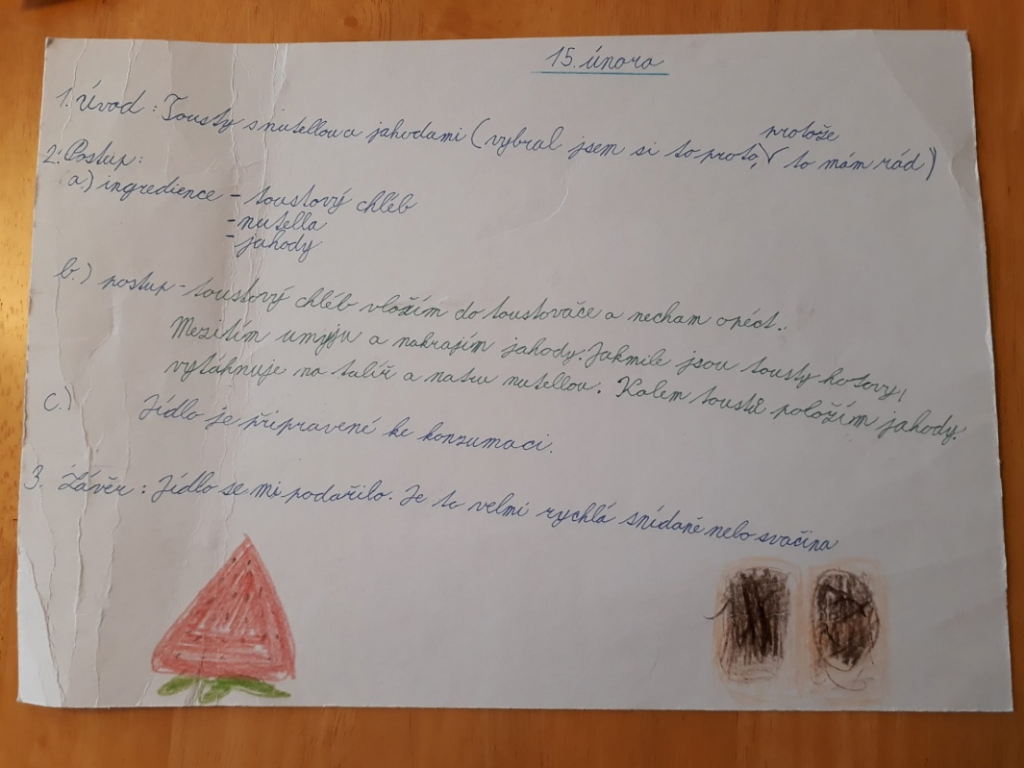 15. února
1. Úvod : Tousty s nutellou a jahodami (vybral jsem si to proto, protože to mám rád)
2. Postup:
a.) ingredience - toustový chléb
- nutella
- jahody
b.) postup - toustový chléb vložím do toustovače a nechám opéct.
Mezitím umyju a nakrájím jahody. Jakmile jsou tousty hotovy,
vytáhnuje na talíř a natru nutellou. Kolem toustů položím jahody.
c.) Jídlo je připravené ke konzumaci.
3. Závěr : Jídlo se mi podařilo. Je to velmi rychlá snídaně nebo svačina